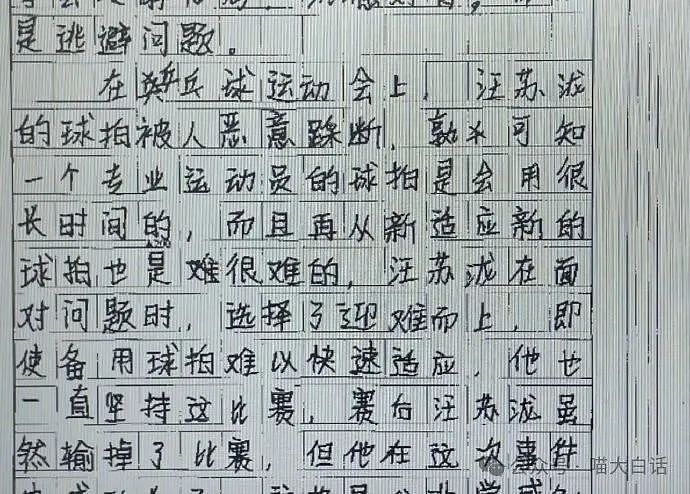 是逃避问题。
在乒乓球运动会上，汪苏泷
的球拍被人恶意踩断，孰不可知
一个专业运动员的球拍是会用很
长时间的，而且再从新适应新的
球拍也是难很难的，汪苏泷在面
对问题时，选择了迎难而上，即
使备用球拍难以快速适应，他也
一直坚持这比赛，赛后汪苏泷虽
然输掉了比赛，但他在这次事件
公众号·喵大白话